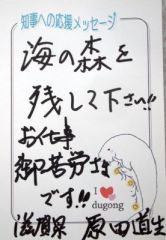 知事への応援メッセージ
海の森を
残して下さい!!
お仕事
御苦労さま
です!!
I
dugong
滋賀県 原田直生